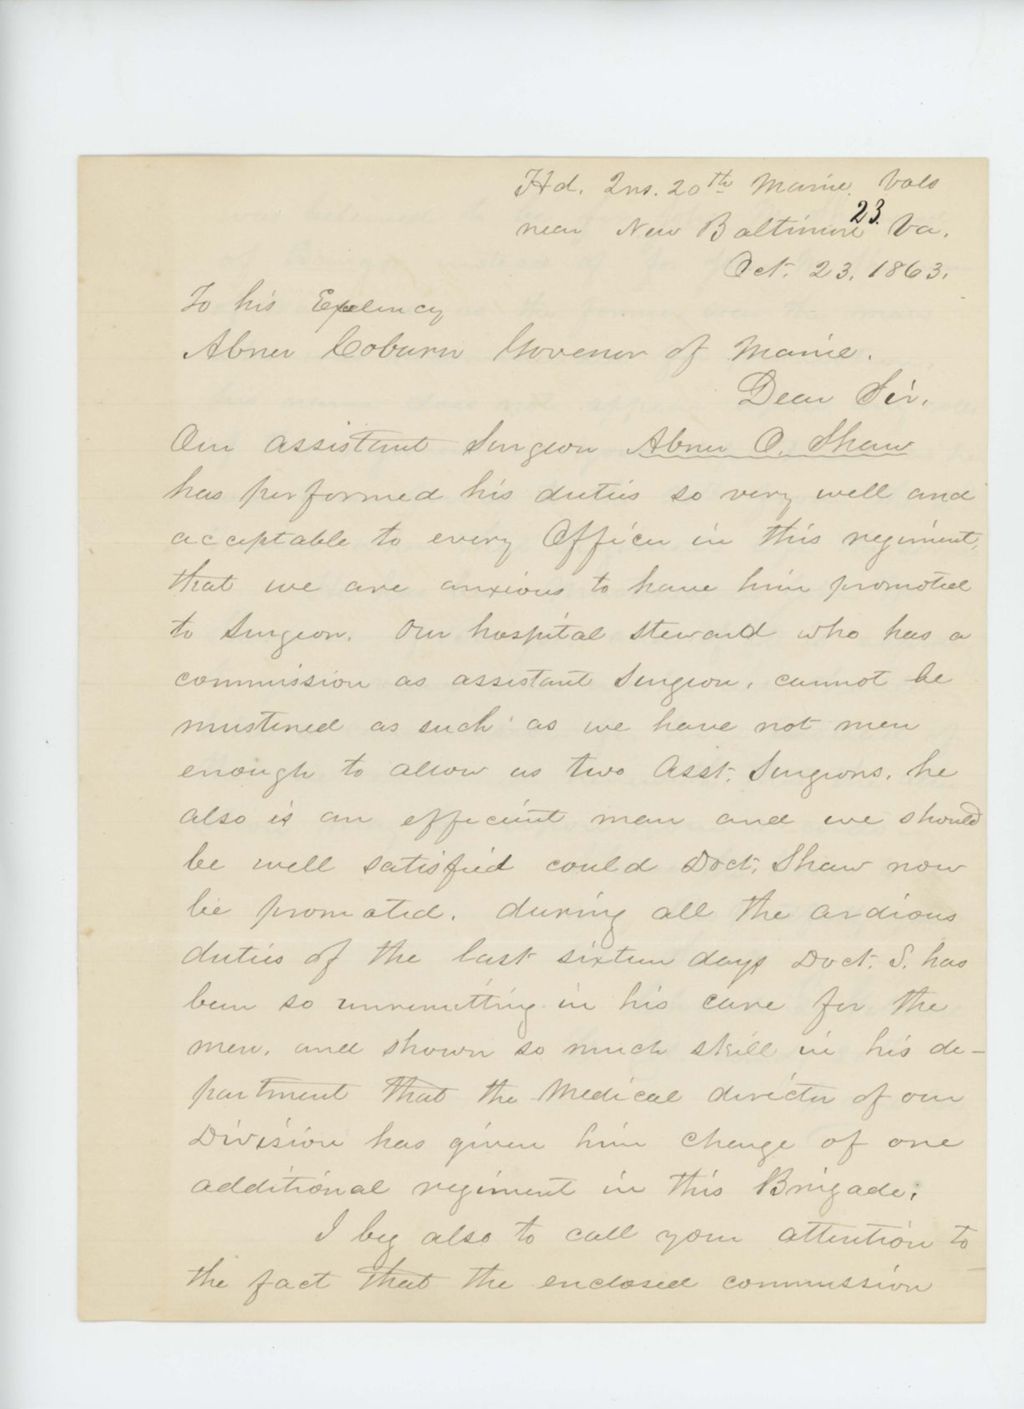 Hd. Qrs. 20th Maine Vols
23.
near New Baltimore Va.
Oct. 23. 1863.
To his Exelency
Abner Coburn Govenor of Maine.
Dear Sir.
Our assistant Surgeon Abner O. Shaw
has performed his duties so very well and
acceptable to every Officer in this regiment,
that we are anxious to have him promoted
to Surgeon. Our hospital steward who has a
commission as assistant Surgeon, cannot be
mustered as such as we have not men
enough to allow us two Asst. Surgeons. he
also is an efficeint man and we should
be well satisfied could Doct. Shaw now
be promoted. during all the ardious
duties of the last sixteen days Doct. S. has
been so unremitting in his care for the
men. and shown so much skill in his de-
partment that the Medical director of our
Division has given him charge of one
additional regiment in this Brigade.
I beg also to call your attention to
the fact that the enclosed commission